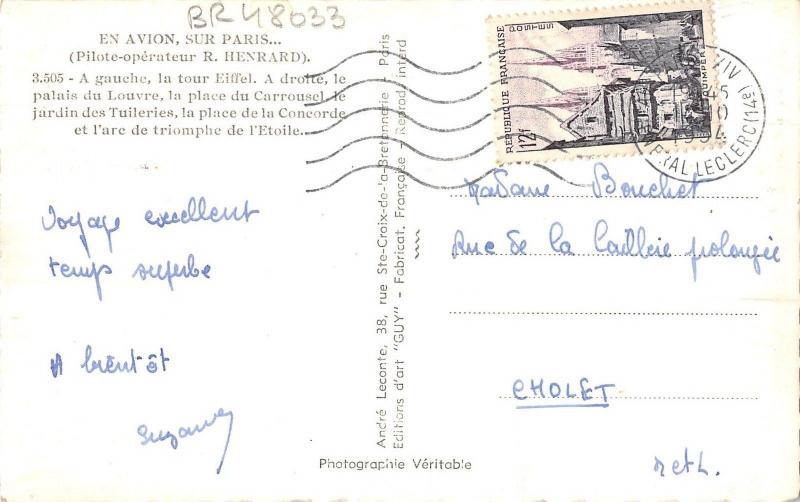 BR48033
EN AVION, SUR PARIS...
(Pilote-opérateur R. HENRARD).
3.505 - A gauche, la tour Eiffel. A droite, le
palais du Louvre, la place du Carrousel, le
jardin des Tuileries, la place de la Concorde
et l'arc de triomphe de l'Etoile...
Voyage excellent
temps superbe
A bientôt
Suzanne
André Leconte, 38, rue Ste-Croix-de-la-Bretonnerie - Paris
Editions d'art "GUY" - Fabricat. Française - Reprod. interd
Photographie Véritable
RÉPUBLIQUE FRANÇAISE
POSTES
12f
QUIMPER
XIV
1954
RAL LECLERC (14e)
Madame Bouchet
Rue de la prolongée
CHOLET